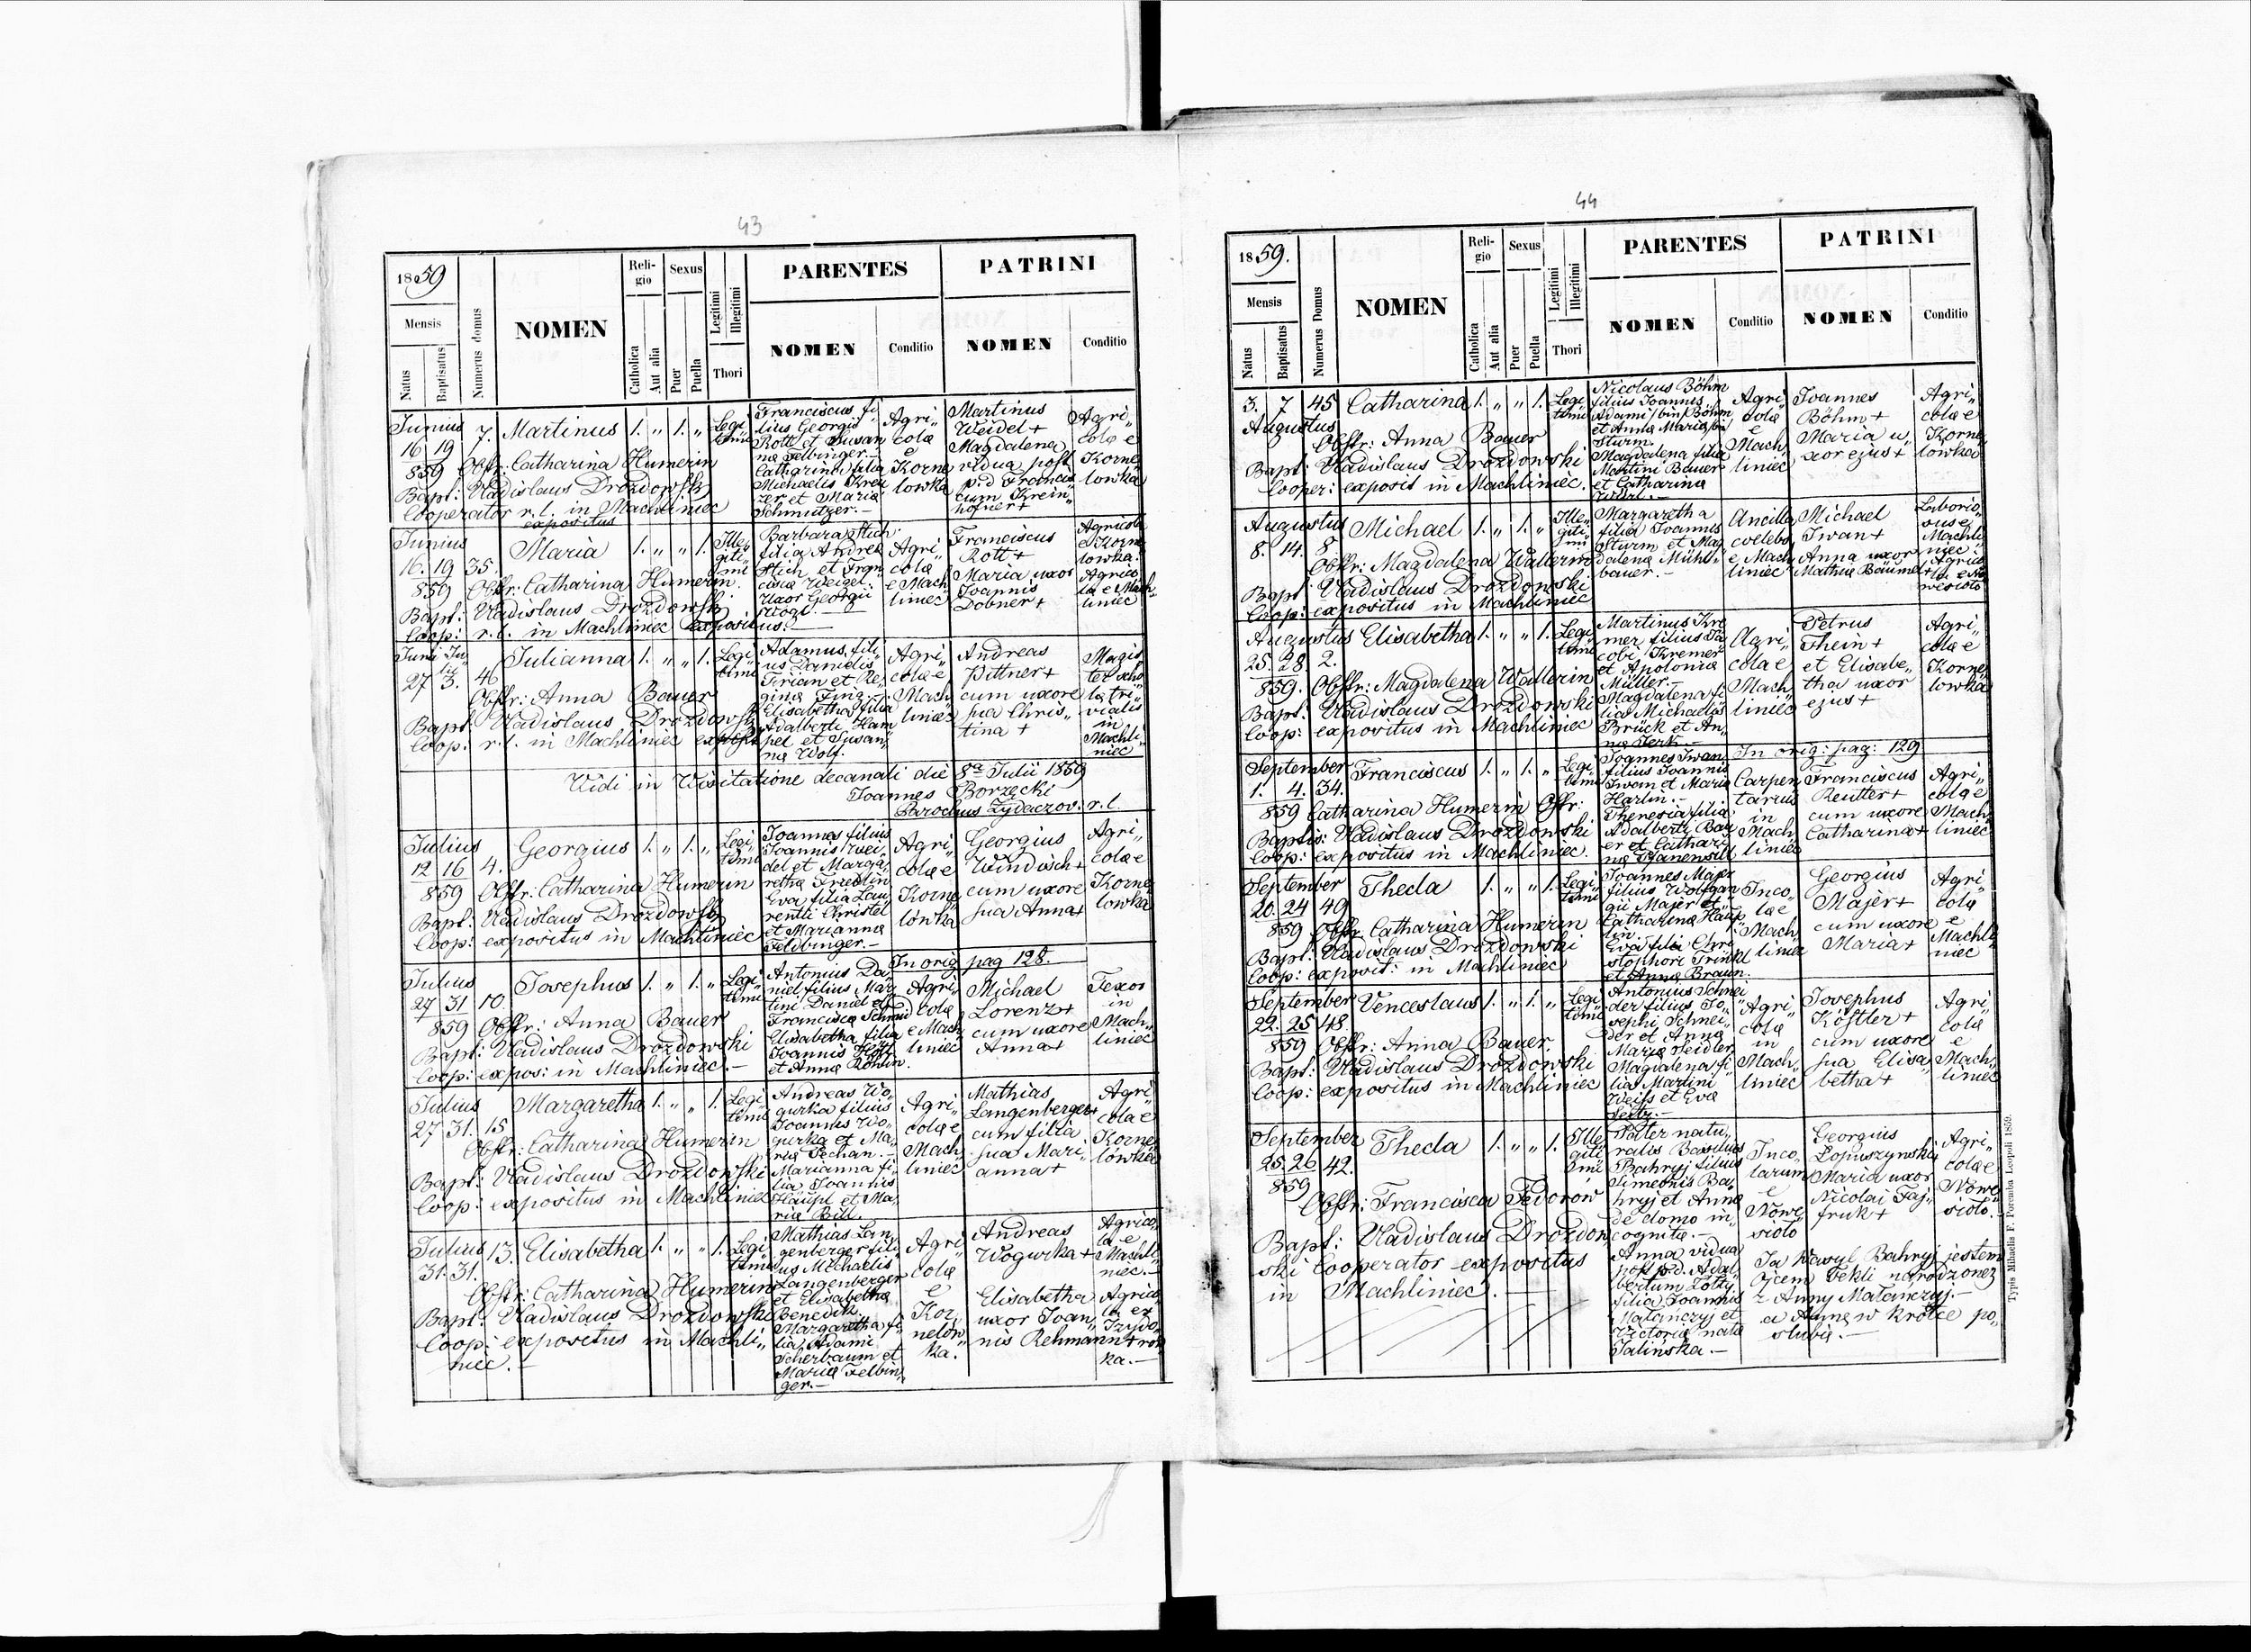 43
1859
Mensis
Natus
Baptisatus
Numerus domus
NOMEN
Reli-
gio
Catholica
Aut alia
Sexus
Puer
Puella
Legitimi
Illegitimi
Thori
PARENTES
NOMEN
Conditio
PATRINI
NOMEN
Conditio
Junius
16 19 7. Martinus 1. „ 1. „ Legi„
timi
859 Obstr: Catharina Humerin
Bapt: Vladislaus Drozdowski
Cooperator r. l. in Machliniec
expositus
Franciscus fi„
lius Georgii
Rott et Susan
na Felbinger.—
Catharina filia
Michaelis Kreu
zer et Maria
Schmutzer.—
Agri„
cola
e
Korne
lowka
Martinus
Weidel +
Magdalena
vidua post
p:d Francis
cum Krein„
hofner +
Agri„
cola e
Korne„
lowka
Junius
16. 19 35. Maria 1. „ „ 1. Ille„
giti„
imi
859 Obstr: Catharina Humerin.
Bapt: Vladislaus Drozdowski
Coop: r. l. in Machliniec expositus.
Barbara Stich
filia Andrea
Stich et Fran
cisca Weigel.
Uxor Georgii
Vogl.
Agri„
cola
e Mach„
liniec
Franciscus
Rott +
Maria uxor
Joannis
Dobner +
Agricola
e Korne
lowka.
Agrico
la e Mach„
liniec
Junii Ju„
lii
27 3. 46 Julianna 1. „ „ 1. Legi„
timi
Obstr: Anna Bauer
Bapt: Vladislaus Drozdowski
Coop: r. l. in Machliniec exposit
Adamus fili„
us Danielis
Tirian et Re„
gina
Elisabetha filia
Adalberti Ham
pel et Susan„
na Wolf.
Agri„
cola e
Mach„
liniec
Andreas
Pittner +
cum uxore
sua Chris„
tina +
Magis
ter scho
la tri„
vialis
in
Machli„
niec
Vidi in Visitatione decanali die 8ª Julii 1859
Joannes Borzęcki
Parochus Żydaczov. r. l.
Julius
12 16 4. Georgius 1. „ 1. „ Legi„
timi
859 Obstr: Catharina Humerin
Bapt: Vladislaus Drozdowski
Coop: expositus in Machliniec
Joannes filius
Joannis Wei„
del et Marga„
retha Friedlin
Eva filia Lau„
rentii Christel
et Marianna
Feldbinger.—
Agri„
cola e
Korne„
lowka
Georgius
Windisch +
cum uxore
sua Anna +
Agri„
cola e
Korne
lowka
In orig pag 128.
Julius
27 31 10. Josephus 1. „ 1. „ Legi„
timi
859 Obstr: Anna Bauer
Bapt: Vladislaus Drozdowski
Coop: expos: in Machliniec.—
Antonius Da„
niel filius Mar„
tini Daniel et
Francisca Schmid
Elisabetha filia
Joannis
et Anna
Agri„
cola
e Mach„
liniec
Michael
Lorenz +
cum uxore
Anna +
Texor
in
Mach„
liniec
Julius
27 31. 15 Margaretha 1. „ „ 1. Legi„
timi
Obstr: Catharina Humerin
Bapt: Vladislaus Drozdowski
Coop: expositus in Machliniec
Andreas Wo„
gurka filius
Joannis Wo„
gurka et Ma„
ria Pechan.—
Marianna fi„
lia Joannis
Haupt et Ma„
ria Bill.
Agri„
cola e
Mach„
liniec
Mathias
Langenberger+
cum filia
sua Mari„
anna +
Agri„
cola e
Korne„
lowka
Julius 13. Elisabetha 1. „ „ 1. Legi„
timi
31. 31.
Obstr: Catharina Humerin
Bapt: Vladislaus Drozdowski
Coop: expositus in Machli„
niec.—
Mathias Lan„
genberger fili„
us Michaelis
Langenberger
et Elisabetha
Benedik.
Margaretha fi„
lia Adami
Scherbaum et
Maria Felbin„
ger.—
Agri„
cola
e
Kor„
nelow„
ka.
Andreas
Wogurka +
Elisabetha
uxor Joan„
nis Rehmann +
Agrico„
la e
Machli„
niec.—
Agrico
la ex
Izydo„
row
ka.—
44
1859.
Mensis
Natus
Baptisatus
Numerus Domus
NOMEN
Reli-
gio
Catholica
Aut alia
Sexus
Puer
Puella
Legitimi
Illegitimi
Thori
PARENTES
NOMEN
Conditio
PATRINI
NOMEN
Conditio
3. 7 45 Catharina 1. „ „ 1. Legi
timi
Augustus
Obstr: Anna Bauer
Bapt: Vladislaus Drozdowski
Cooper: exposit in Machliniec.
Nicolaus Böhm
filius Joannis
Adami /bin/ Böhm
et Anna Maria /bi/
Sturm.
Magdalena filia
Martini Bauer
et Catharina
Agri„
cola
e
Mach„
liniec
Joannes
Böhm +
Maria u„
xor ejus +
Agri„
cola e
Korne„
lowka
Augustus Michael 1. „ 1. „ Ille„
giti„
imi
8. 14. 8
Obstr: Magdalena Wallerin
Bapt: Vladislaus Drozdowski
Coop: expositus in Machliniec
Margaretha
filia Joannis
Sturm et Mag
dalena Mühl„
bauer.—
Ancilla
coelebs
e Mach„
liniec
Michael
Iwan +
Anna uxor
Mathia Bäumel +
Laborio„
sus e
Machli„
niec
Agrico„
la e No
wesioło
Augustus Elisabetha 1. „ „ 1. Legi„
timi
25. 28. 2.
859. Obstr: Magdalena Wallerin
Bapt: Vladislaus Drozdowski
Coop: expositus in Machliniec
Martinus Kre
mer filius Ja
cobi Kremer
et Apolonia
Müller.—
Magdalena fi„
lia Michaelis
Brück et An„
na Serk.—
Agri„
cola e
Mach„
liniec
Petrus
Thein +
et Elisabe„
tha uxor
ejus +
Agri„
cola e
Korne„
lowka
In orig: pag: 129
September Franciscus 1. „ 1. „ Legi„
timi
1. 4. 34.
859 Catharina Humerin Obstr:
Baptis: Vladislaus Drozdowski
Coop: expositus in Machliniec.
Joannes Iwan
filius Joannis
Iwan et Maria
Harlin.—
Theresia filia
Adalberti Bau„
er et Cathari„
na
Carpen„
tarius
in
Mach„
liniec
Franciscus
Reutter +
cum uxore
Catharina +
Agri„
cola e
Mach„
liniec
September Thecla 1. „ „ 1. Legi„
timi
20. 24 49.
859 Obstr Catharina Humerin
Bapt: Vladislaus Drozdowski
Coop: exposit: in Machliniec
Joannes Majer
filius Wolfgan
gii Majer et
Catharina
lin.
Eva filia Chri
stophori Trinkl
et Anna Braun.
Inco„
la e
Mach„
liniec
Georgius
Majer +
cum uxore
Maria +
Agri„
cola
e
Machli
niec
September Venceslaus 1. „ 1. „ Legi„
timi
22. 25 48.
859 Obstr: Anna Bauer
Bapt: Vladislaus Drozdowski
Coop: expositus in Machliniec
Antonius Schnei
der filius Jo„
sephi Schnei„
der et Anna
Maria Seidler
Magdalena fi„
lia Martini
Weiss et Eva
Agri„
cola
in
Mach„
liniec
Josephus
Köstler +
cum uxore
sua Elisa„
betha +
Agri„
cola
e
Mach„
liniec
September Thecla 1. „ „ 1. Ille„
giti„
imi
25. 26 42.
859
Obstr: Francisca Fedorow
Bapt: Vladislaus Drozdow
ski Cooperator expositus
in Machliniec.—
Pater natu„
ralis Basilius
Bahryj filius
Simeonis Ba„
hryj et Anna
de domo in„
cognita.—
Anna vidua
post p.d. Adal„
bertum Zołty
filia Joannis
Matanczyj et
Victoria nata
Jalinska.—
Inco„
larum
e
Nowe
sioło
Georgius
Łopuszynski
Maria uxor
Nicolai Faj„
fruk +
Agri„
cola e
Nowe
sioło.
Ja Wasyl Bahryj jestem
Ojcem Tekli narodzonej
z Anny Matanczyj.—
a Annę w krótce po„
slubię.—
Typis Mihaelis F. Poremba Leopoli 1859.